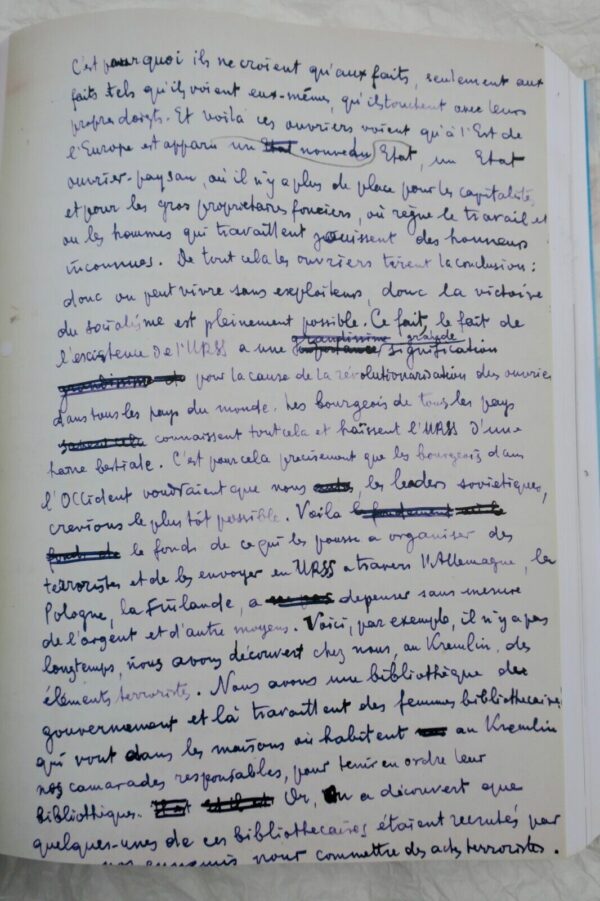 C'est pourquoi ils ne croient qu'aux faits, seulement aux
faits tels qu'ils voient eux-mêmes, qu'ils touchent avec leurs
propres doigts. Et voilà ces ouvriers voient qu'à l'Est de
l'Europe est apparu un Etat nouveau Etat, un Etat
ouvrier-paysan, où il n'y a plus de place pour les capitalistes
et pour les gros propriétaires fonciers, où règne le travail et
où les hommes qui travaillent jouissent des honneurs
inconnues. De tout cela les ouvriers tirent la conclusion :
donc on peut vivre sans exploiteurs, donc la victoire
du socialisme est pleinement possible. Ce fait, le fait de
l'existence de l'URSS a une grandissime importance grande signification
pour la cause de la révolutionarisation des ouvriers
dans tous les pays du monde. Les bourgeois de tous les pays
savent cela connaissent tout cela et haïssent l'URSS d'une
haine bestiale. C'est pour cela précisement que les bourgeois dans
l'Occident voudraient que nous, les leaders soviétiques,
crevions le plus tôt possible. Voilà le fondement
le fonds de ce qui les pousse a organiser des
terroristes et de les envoyer en URSS a travers l'Allemagne, la
Pologne, la Finlande, a depenser sans mesure
de l'argent et d'autre moyens. Voici, par exemple, il n'y a pas
longtemps, nous avons découvert chez nous, au Kremlin, des
éléments terroristes. Nous avons une bibliothèque de
gouvernement et là travaillent des femmes bibliothecaires
qui vont dans les maisons où habitent au Kremlin
nos camarades responsables, pour tenir en ordre leur
bibliothèques. Or, on a découvert que
quelques-unes de ces bibliothecaires étaient recrutés par
nos ennemis pour commettre des actes terroristes.